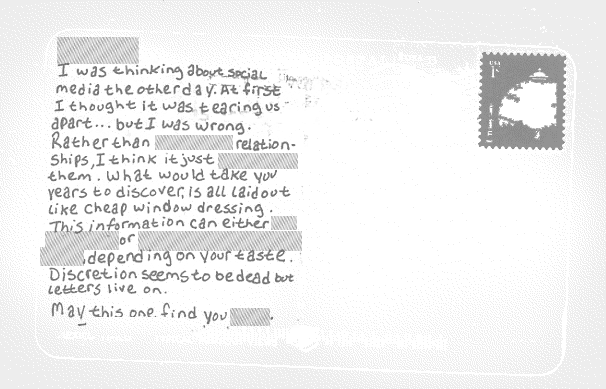 I was thinking about social
media the other day. At first
I thought it was tearing us
apart... but I was wrong.
Rather than relation-
ships, I think it just
them. What would take you
years to discover, is all laid out
like cheap window dressing.
This information can either
or
, depending on your taste.
Discretion seems to be dead but
letters live on.
May this one find you .
USA
1¢